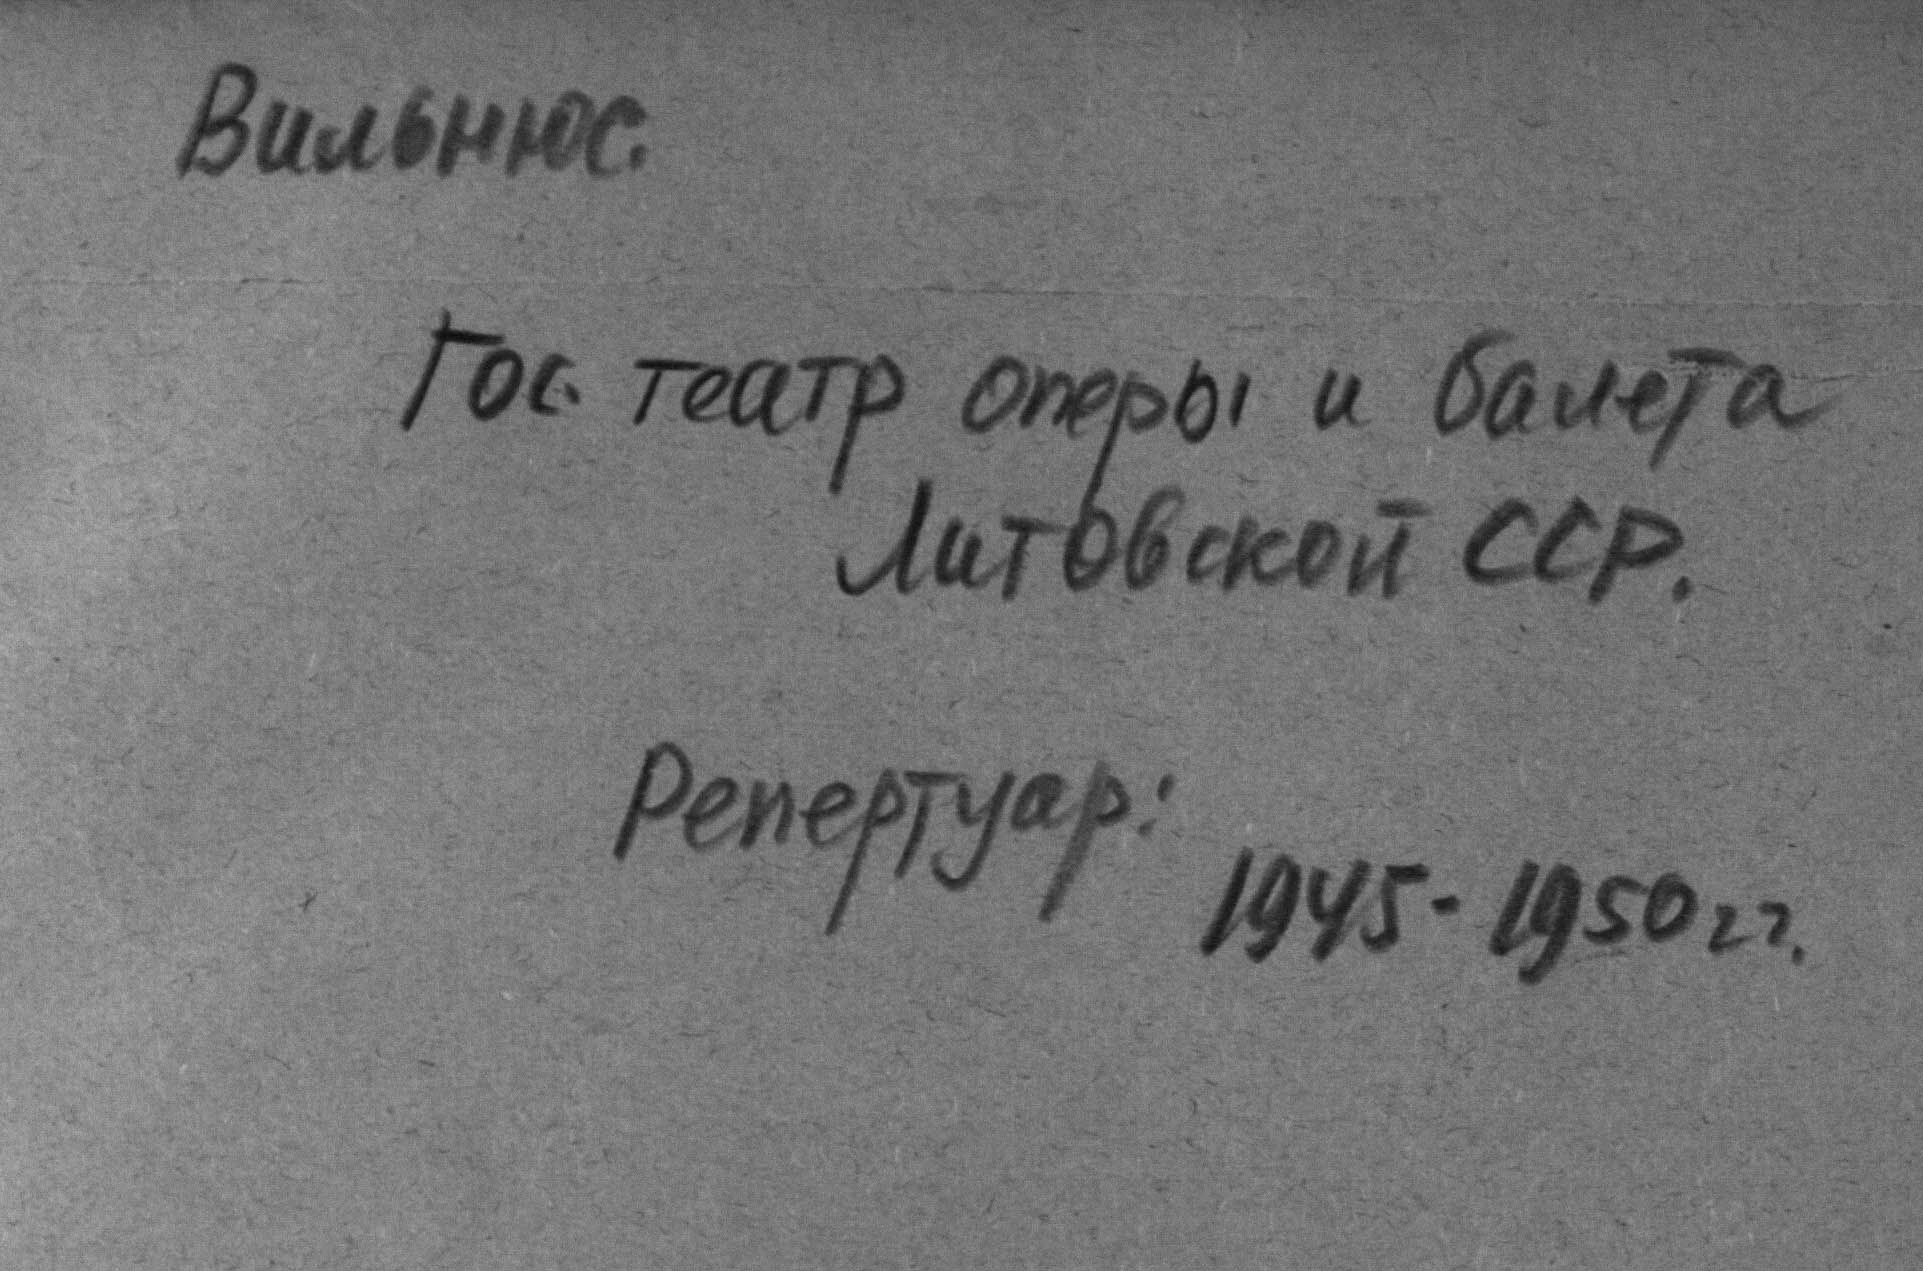 Вильнюс.
Гос. театр оперы и балета
Литовской ССР.
Репертуар:
1945-1950 гг.